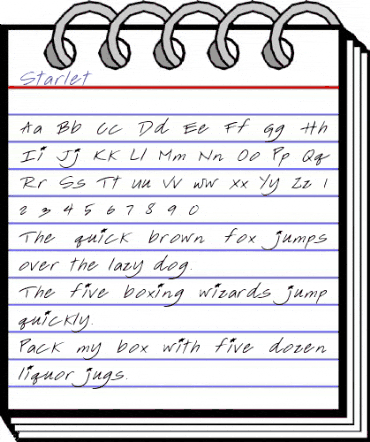 Starlet
Aa Bb Cc Dd Ee Ff Gg Hh
Ii Jj KK Ll Mm Nn Oo Pp Qq
Rr Ss Tt uu Vv ww xx Yy Zz 1
2 3 4 5 6 7 8 9 0
The quick brown fox jumps
over the lazy dog.
The five boxing wizards jump
quickly.
Pack my box with five dozen
liquor jugs.